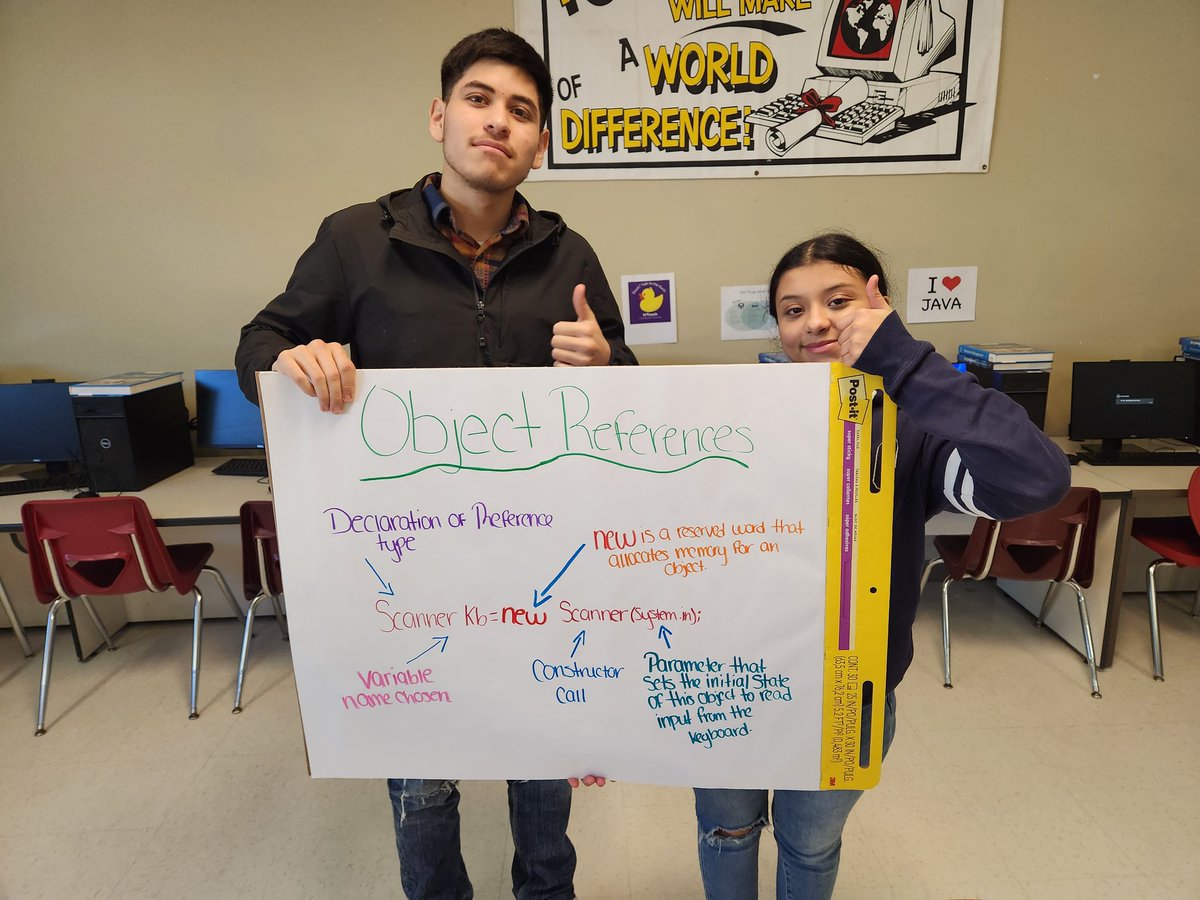 WILL MAKE
A WORLD
OF
DIFFERENCE!
I ❤ JAVA
Post-it
super sticky
Object References
Declaration of Reference
type
new is a reserved word that
allocates memory for an
object.
Scanner Kb = new Scanner(System.in);
Variable
name chosen
Constructor
Call
Parameter that
sets the initial State
of this object to read
input from the
keyboard.
3M